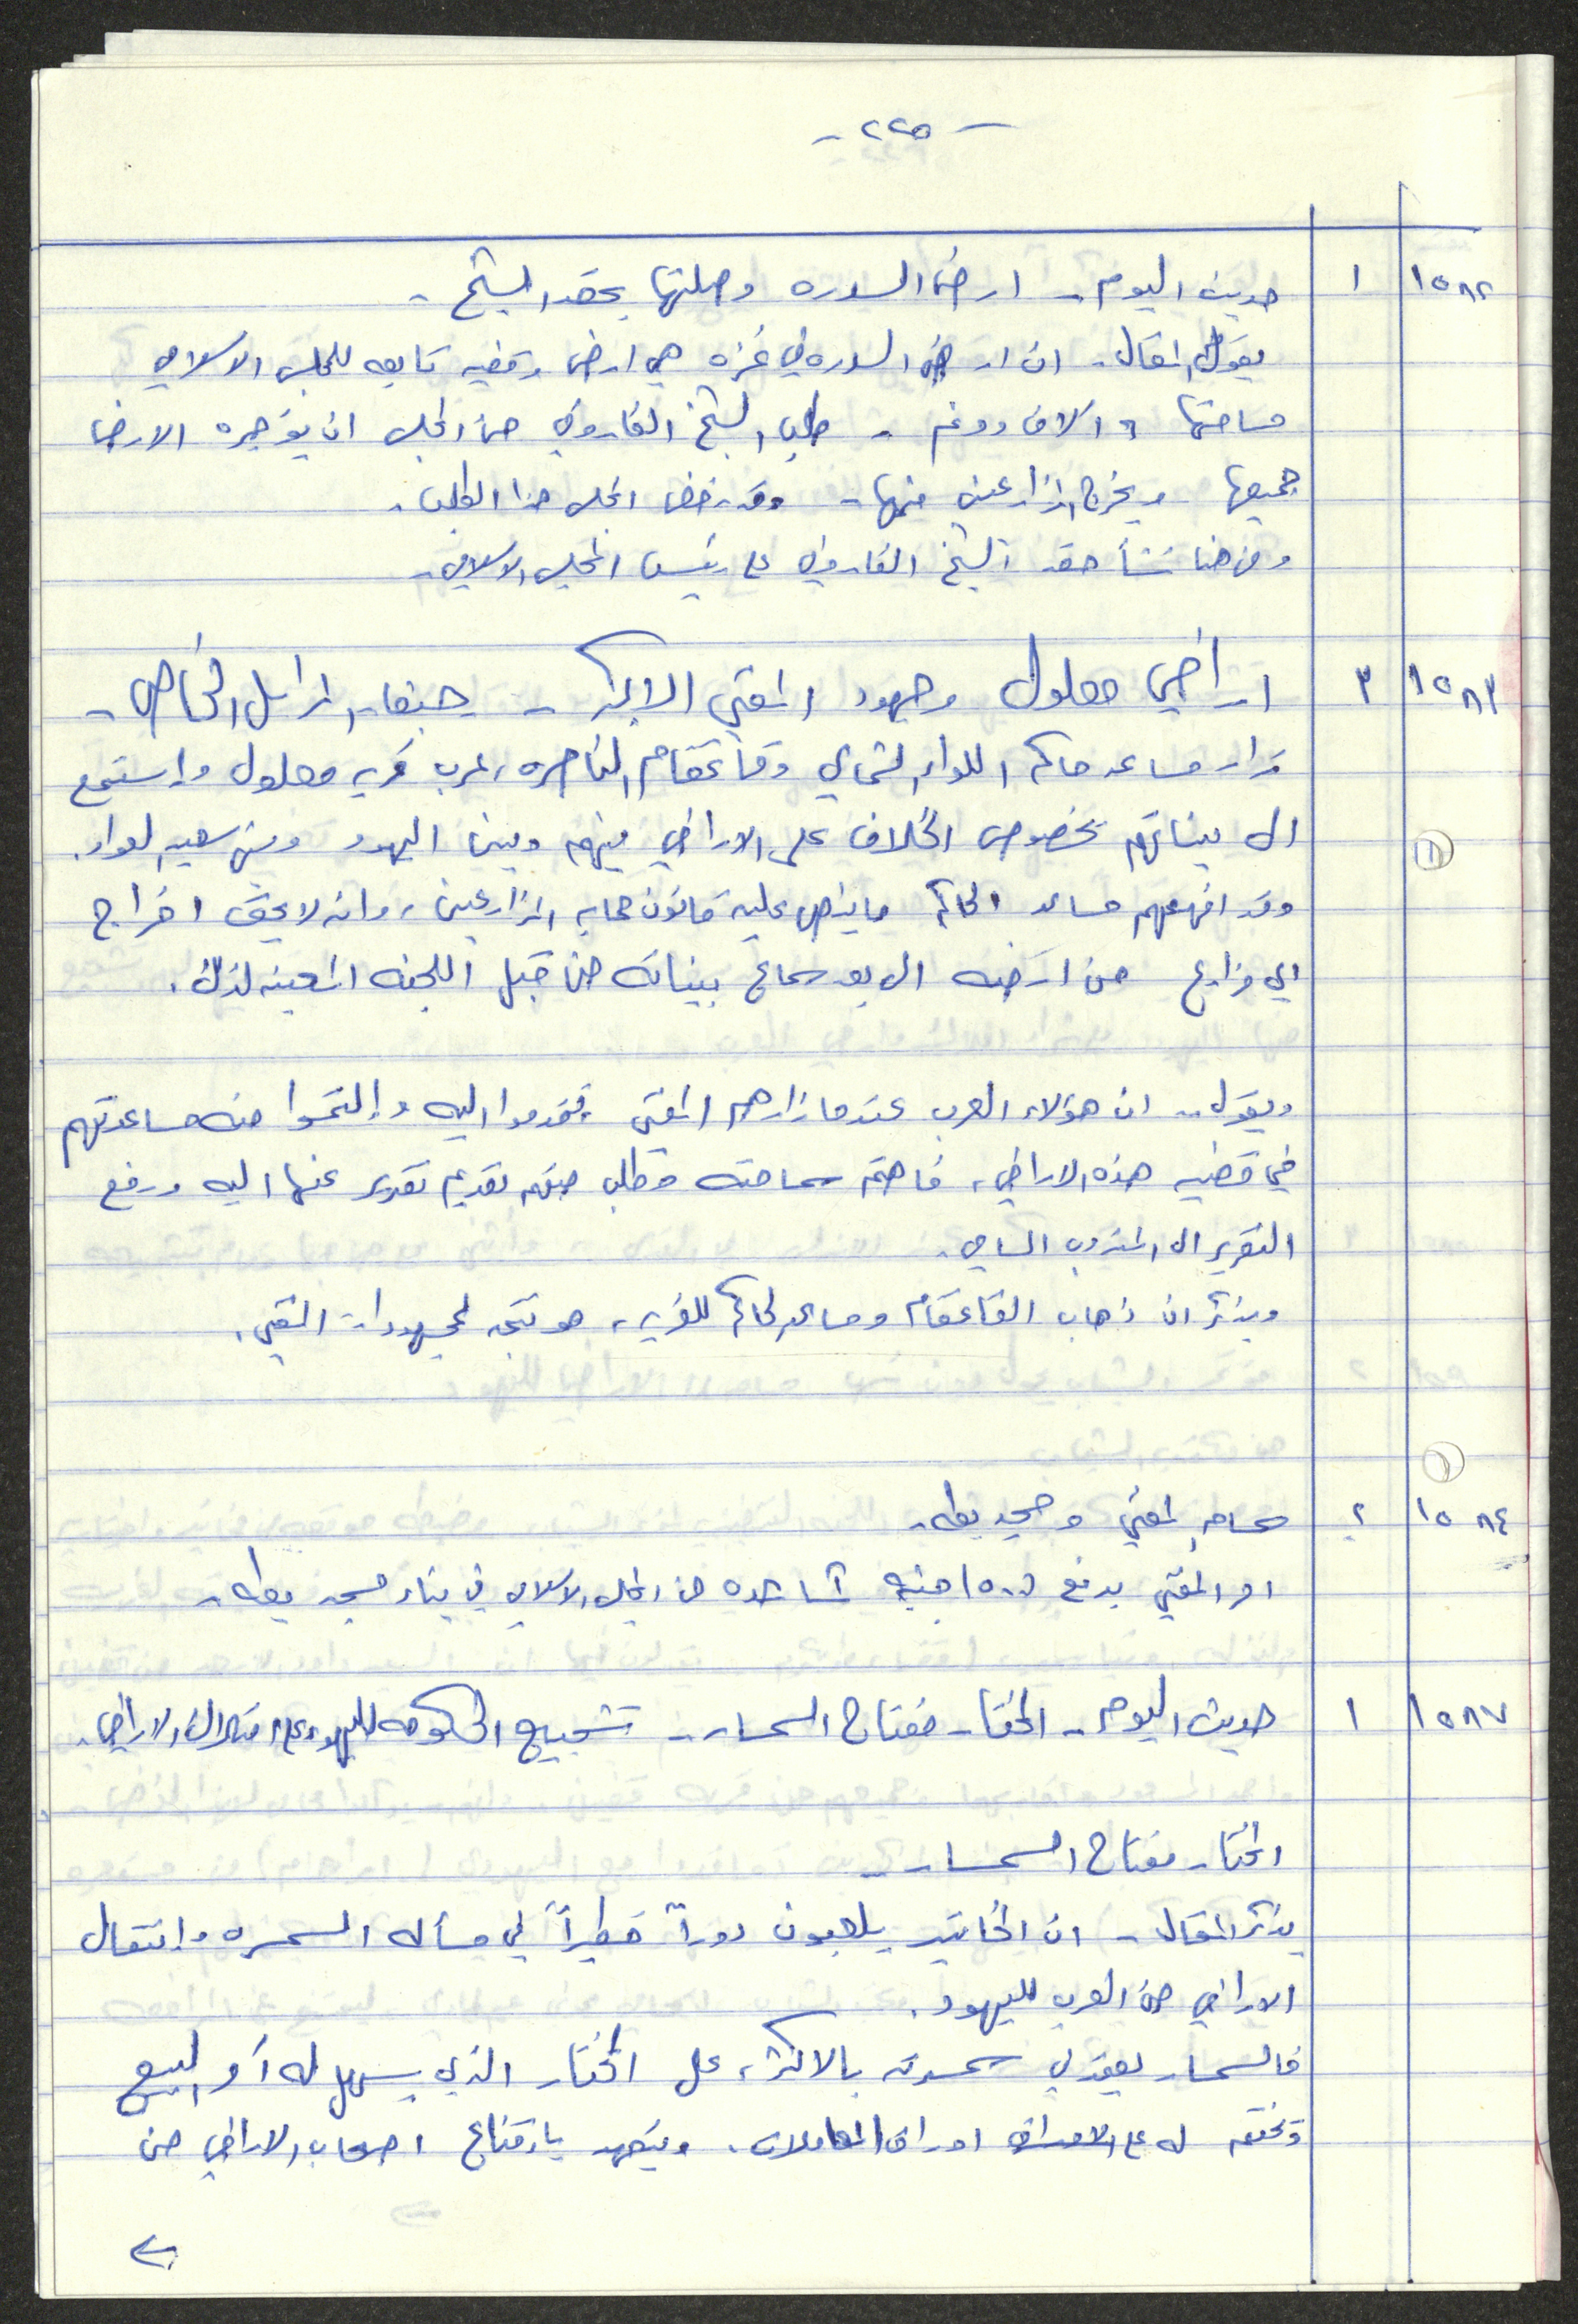 - ٢٢٥ -
١٥٨٢ ١ حديث اليوم - ارض السدره وصلتها بحقد الشيخ -
يقول المقال - ان ارض السدره في غزه هي ارض وقفيه تابعه للمجلس الاسلامي
مساحتها ٦ آلاف دونم - طلب الشيخ الفاروقي من المجلس ان يؤجره الارض
جميعها ويخرج المزارعين منها - وقد رفض المجلس هذا الطلب.
ومن هنا نشأ حقد الشيخ الفاروقي على رئيس المجلس الاسلامي -
١٥٨٣ ٣ اراضي معلول وجهود المفتي الاكبر - حيفا - لمراسل الخاص -
زار مساعد حاكم اللواء الشمالي وقائمقام الناصره، عرب قريه معلول وإستمع
الى بيناتهم بخصوص الخلاف على الاراضي بينهم وبين اليهود
①
وقد افهمهم مساعد الحاكم ما ينص عليه قانون حمايه المزارعين، وانه لا يحق اخراج
اي مزارع من ارضه الا بعد سماع بيناته من قبل اللجنه المعينه لذلك.
ويقول - ان هؤلاء العرب عندما زارهم المفتي، تقدموا اليه وإلتمسوا منه مساعدتهم
في قضيه هذه الاراضي، فاهتم سماحته وطلب منهم تقديم تقرير عنها اليه ورفع
التقرير الى المندوب السامي.
ويذكر ان ذهاب القائمقام ومساعد الحاكم للقريه، هو نتيجه لمجهودات المفتي.
①
١٥٨٤ ٢ سماحه المفتي ومسجد يطه.
امر المفتي بدفع (١٥٠) جنيه كمساعده من المجلس الاسلامي في بناء مسجد يطه -
١٥٨٧ ١ حديث اليوم - المختار مفتاح السمسار - تشجيع الحكومه لليهود على امتلاك الاراضي.
المختار مفتاح السمسار -
يذكر المقال - ان المخاتير يلعبون دوراً خطيراً في مسأله السمسره وإنتقال
الاراضي من العرب لليهود.
فالسمسار يعتمد في سمسرته بالاكثر، على المختار الذي يسهل له أمر البيع
ويختم له على اوراق المعاملات. ويتعهد بإقناع اصحاب الاراضي من